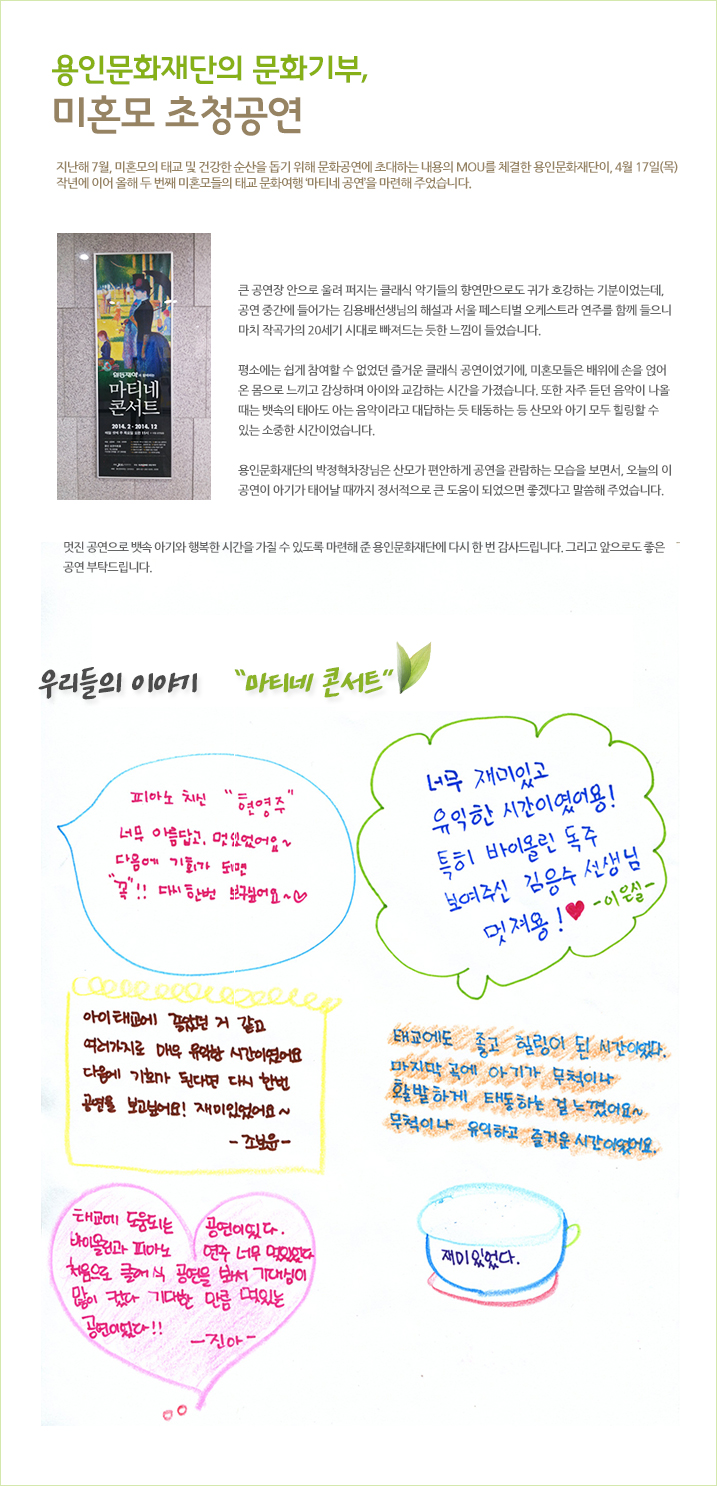 용인문화재단의 문화기부,
미혼모 초청공연
지난해 7월, 미혼모의 태교 및 건강한 순산을 돕기 위해 문화공연에 초대하는 내용의 MOU를 체결한 용인문화재단이, 4월 17일(목)
작년에 이어 올해 두 번째 미혼모들의 태교 문화여행 '마티네 공연'을 마련해 주었습니다.
마티네
콘서트
2014. 2 - 2014. 12
큰 공연장 안으로 울려 퍼지는 클래식 악기들의 향연만으로도 귀가 호강하는 기분이었는데,
공연 중간에 들어가는 김용배선생님의 해설과 서울 페스티벌 오케스트라 연주를 함께 들으니
마치 작곡가의 20세기 시대로 빠져드는 듯한 느낌이 들었습니다.
평소에는 쉽게 참여할 수 없었던 즐거운 클래식 공연이었기에, 미혼모들은 배위에 손을 얹어
온 몸으로 느끼고 감상하며 아이와 교감하는 시간을 가졌습니다. 또한 자주 듣던 음악이 나올
때는 뱃속의 태아도 아는 음악이라고 대답하는 듯 태동하는 등 산모와 아기 모두 힐링할 수
있는 소중한 시간이었습니다.
용인문화재단의 박정혁차장님은 산모가 편안하게 공연을 관람하는 모습을 보면서, 오늘의 이
공연이 아기가 태어날 때까지 정서적으로 큰 도움이 되었으면 좋겠다고 말씀해 주었습니다.
멋진 공연으로 뱃속 아기와 행복한 시간을 가질 수 있도록 마련해 준 용인문화재단에 다시 한 번 감사드립니다. 그리고 앞으로도 좋은
공연 부탁드립니다.
우리들의 이야기 "마티네 콘서트"
피아노 치신 "현영주"
너무 아름답고, 멋있었어요~
다음에 기회가 되면
"꼭"!! 다시한번 보구싶어요~♡
너무 재미있고
유익한 시간이였어용!
특히 바이올린 독주
보여주신 김응수 선생님
멋져용!♥ -이은실-
아이태교에 좋았던 거 같고
여러가지로 매우 유익한 시간이였어요
다음에 기회가 된다면 다시 한번
공연을 보고싶어요! 재미있었어요~
-조보윤-
태교에도 좋고 힐링이 된 시간이었다.
마지막 곡에 아기가 무척이나
활발하게 태동하는 걸 느꼈어요~
무척이나 유익하고 즐거운 시간이였어요.
태교에 도움되는 공연이었다.
바이올린과 피아노 연주 너무 멋있었다
처음으로 클래식 공연을 봐서 기대심이
많이 컸다 기대한 만큼 멋있는
공연이었다!!
-진아-
재미있었다.